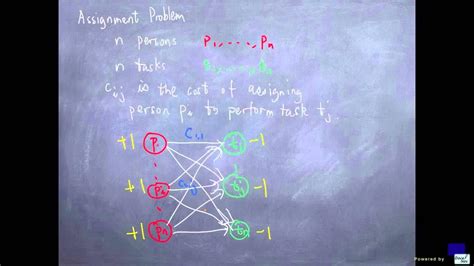 Assignment Problem
n persons P1, ...., Pn
n tasks t1, ...., tn
Cij is the cost of assigning
person Pi to perform task tj.
+1 P1 C11 t1 -1
+1 Pi Cij tj -1
+1 Pn tn -1
Powered by